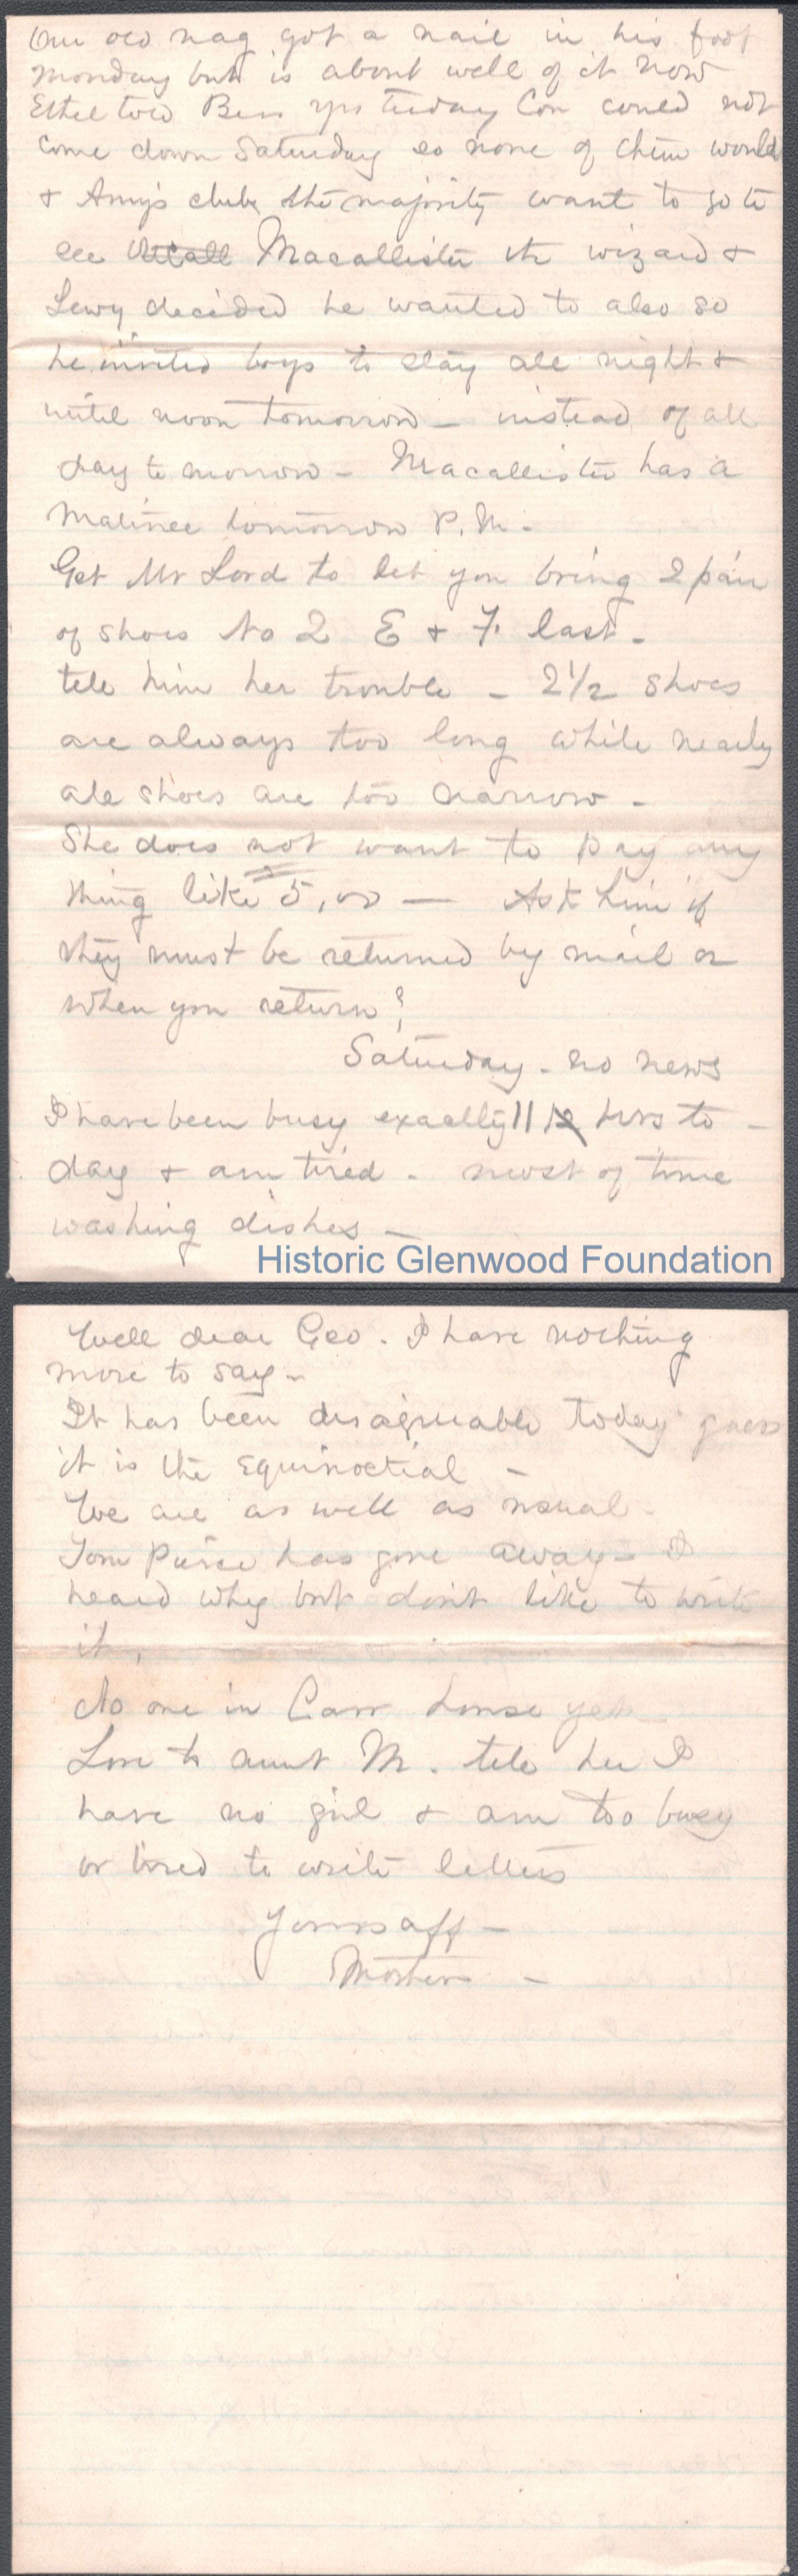 Our old nag got a nail in his foot
Monday but is about well of it now
Ethel told Bess yesterday Con could not
come down Saturday so none of them would
& Amy's club, the majority want to go to
see Macallister the wizard &
Lewy decided he wanted to also so
he invited boys to stay all night &
until noon tomorrow - instead of all
day tomorrow - Macallister has a
Matinee tomorrow P.M. -
Get Mr Lord to let you bring 2 pair
of shoes No 2 E & F. last -
tell him her trouble - 2 1/2 shoes
are always too long while nearly
all shoes are too narrow -
She does not want to pay any
thing like 5.00 — Ask him if
they must be returned by mail or
when you return?
Saturday - no news
I have been busy exactly 11 hrs to -
day & am tired - most of time
washing dishes -
Historic Glenwood Foundation
Well dear Geo. I have nothing
more to say -
It has been disagreeable today guess
it is the equinoctial -
We are as well as usual -
Tom Pierce has gone away - I
heard why but don't like to write
it.
No one in Carr house yet
Love to aunt M. tell her I
have no girl & am too busy
or tired to write letters
Yours aff -
Mother -